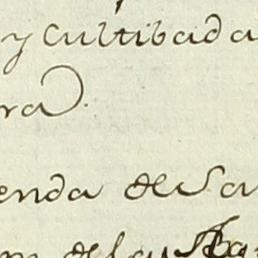 y Cultibada
ra).
enda de San
de la